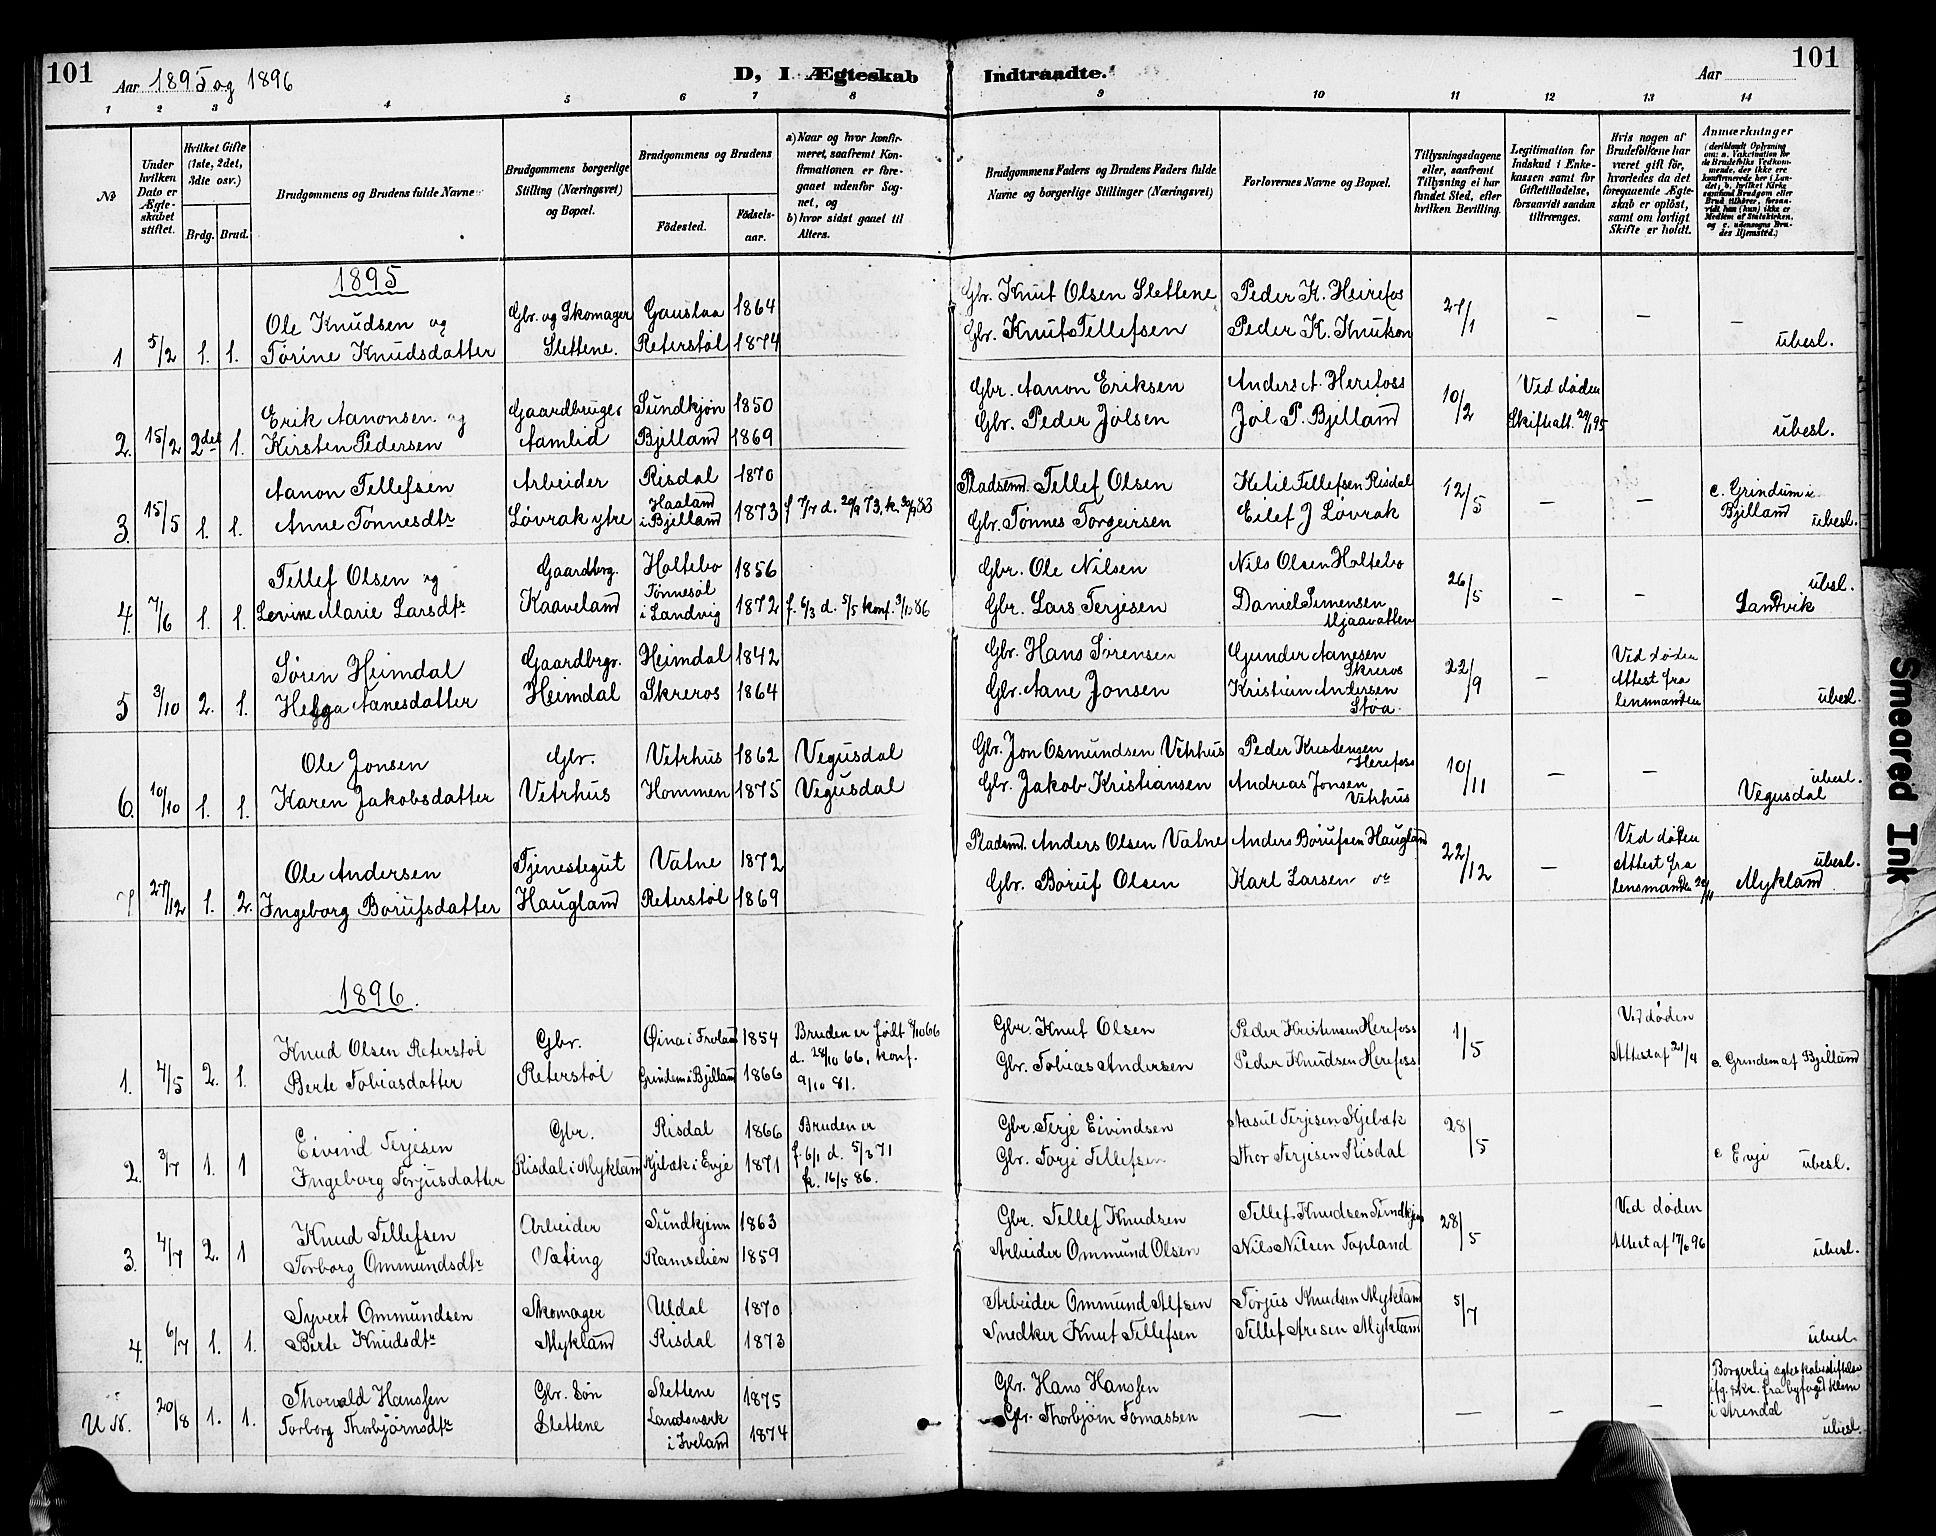 101
Aar 1895 og 1896
D, I Ægteskab Indtraadte.
Aar
101
1 2 3 4 5 6 7 8 9 10 11 12 13 14
No
Under hvilken Dato er Ægteskabet stiftet.
Hvilket Gifte (1ste, 2det, 3die osv.)
Brdg. Brud.
Brudgommens og Brudens fulde Navne
Brudgommens borgerlige Stilling (Næringsvei) og Bopæl.
Brudgommens og Brudens
Födested.
Födselsaar.
a) Naar og hvor konfirmeret, saafremt Konfirmationen er foregaaet udenfor Sognet, og
b) hvor sidst gaaet til Alters.
Brudgommens Faders og Brudens Faders fulde Navne og borgerlige Stillinger (Næringsvei)
Forlovernes Navne og Bopæl.
Tillysningsdagene eller, saafremt Tillysning ei har fundet Sted, efter hvilken Bevilling.
Legitimation for Indskud i Enkekassen samt for Giftetilladelse, forsaavidt saadan tiltrænges.
Hvis nogen af Brudefolkene har været gift för, hvorledes da det foregaaende Ægteskab er oplöst, samt om lovligt Skifte er holdt.
Anmærkninger (deriblandt Oplysning om: a. Vakcination for de Brudefolks Vedkommende, der ikke ere konfirmerede her i Landet; b. hvilket Kirkesamfund Brudgom eller Brud tilhörer, forsaavidt han (hun) ikke er Medlem af Statskirken, og c. udensogns Brudes Hjemsted.)
1895
1 5/2 1. 1. Ole Knudsen og Gbr. og Skomager Gauslaa 1864 Gbr. Knut Olsen Slettene Peder K. Heirefos 27/1 — — —
Tørine Knudsdatter Slettene. Reterstøl 1874 Gbr. Knut Tellefsen Peder K. Knutson ubesl.
2. 15/2 2det 1. Erik Aanonsen og Gaardbruger Sundkjøn 1850 Gbr. Aanon Eriksen Anders A. Herefoss 10/2 Ved døden
Kirsten Pedersen Aamlid Bjelland 1869 Gbr. Peder Jolsen Jol P. Bjelland Skifteatt. 29/1 95 ubesl.
3. 15/5 1. 1. Aanon Tellefsen Arbeider Risdal 1870 Pladsmd. Tellef Olsen Ketil Tellefsen Risdal 12/5 — — c. Grindum i Bjelland
Anne Tønnesdtr Løvrak ytre Haaland i Bjelland 1873 f 7/7 d. 20/9 73, k. 30/9 88 Gbr. Tønnes Torgeirsen Eilef J Løvrak ubesl.
4. 7/6 1. 1. Tellef Olsen og Gaardbrg. Holtebo 1856 Gbr. Ole Nilsen Nils Olsen Holtebo 26/5 — — ubesl.
Levine Marie Larsdtr Kaaveland Tønnesøl i Landvig 1872 f. 6/3 d. 5/5 konf. 3/10 86 Gbr. Lars Terjesen Daniel Simensen Mjaavatten Landvik
5 3/10 2. 1. Søren Heimdal Gaardbrgr. Heimdal 1842 Gbr. Hans Sørensen Gunder Aanesen Skreros 22/9 — Ved døden
Helga Aanesdatter Heimdal Skreros 1864 Gbr. Aane Jonsen Kristian Andersen Stoa. Attest fra lensmanden ubesl.
6. 10/10 1. 1. Ole Jonsen Gbr. Vetrhus 1862 Vegusdal Gbr. Jon Osmundsen Vetrhus Peder Kristensen Herefoss 10/11 — — ubesl.
Karen Jakobsdatter Vetrhus Hommen 1875 Vegusdal Gbr. Jakob Kristiansen Andreas Jonsen Vetrhus Vegusdal
7 27/12 1. 2. Ole Andersen Tjenestegut Vatne 1872 Pladsmd. Anders Olsen Vatne Anders Borufsen Haugland 22/12 — Ved døden ubesl.
Ingeborg Borufsdatter Haugland Reterstøl 1869 Gbr. Boruf Olsen Karl Larsen do Attest fra lensmanden Mykland
1896.
1. 4/5 2. 1. Knud Olsen Reterstøl Gbr. Øina i Froland 1854 Bruden er født 8/10 66 Gbr. Knut Olsen Peder Kristensen Herefoss 1/5 Ved døden
Berte Tobiasdatter Reterstøl Grindem i Bjelland 1866 d. 28/10 66, konf. 9/10 81. Gbr. Tobias Andersen Peder Knudsen Herefoss Attest af 21/4 c. Grindem af Bjelland
2. 3/7 1. 1 Eivind Terjesen Gbr. Risdal 1866 Bruden er Gbr. Terje Eivindsen Aasul Terjesen Kjebæk 28/5
Ingeborg Torjusdatter Risdal i Mykland Kjebæk i Evje 1871 f. 6/1 d. 5/3 71 k. 16/5 86. Gbr. Torje Tellefsen Thor Terjesen Risdal c Evje ubesl.
3. 4/7 2. 1 Knud Tellefsen Arbeider Sundkjenn 1863 Gbr. Tellef Knudsen Tellef Knudsen Sundkjen 28/5 Ved døden
Torborg Ommundsdtr Væting Ramselien 1859 Arbeider Ommund Olsen Nils Nilsen Topland Attest af 17/6 96 ubesl.
4. 6/7 1. 1. Syvert Ommundsen Skomager Uldal 1870 Arbeider Ommund Alfsen Torjus Knudsen Mykland 5/7
Berte Knudsdtr Mykland Risdal 1873 Snedker Knut Tellefsen Tellef Aresen Mykland ubesl.
U N. 20/8 1. 1. Thorvald Hanssen Gbr. Søn Slettene 1875 Gbr. Hans Hanssen — — — — Borgerlig ægteskabsstiftelse ifg. skr. fra byfoged Klem i Arendal
Torborg Thorbjørnsdtr Slettene Landsverk i Iveland 1874 Gbr. Thorbjørn Tomassen ubesl.
Smeared Ink